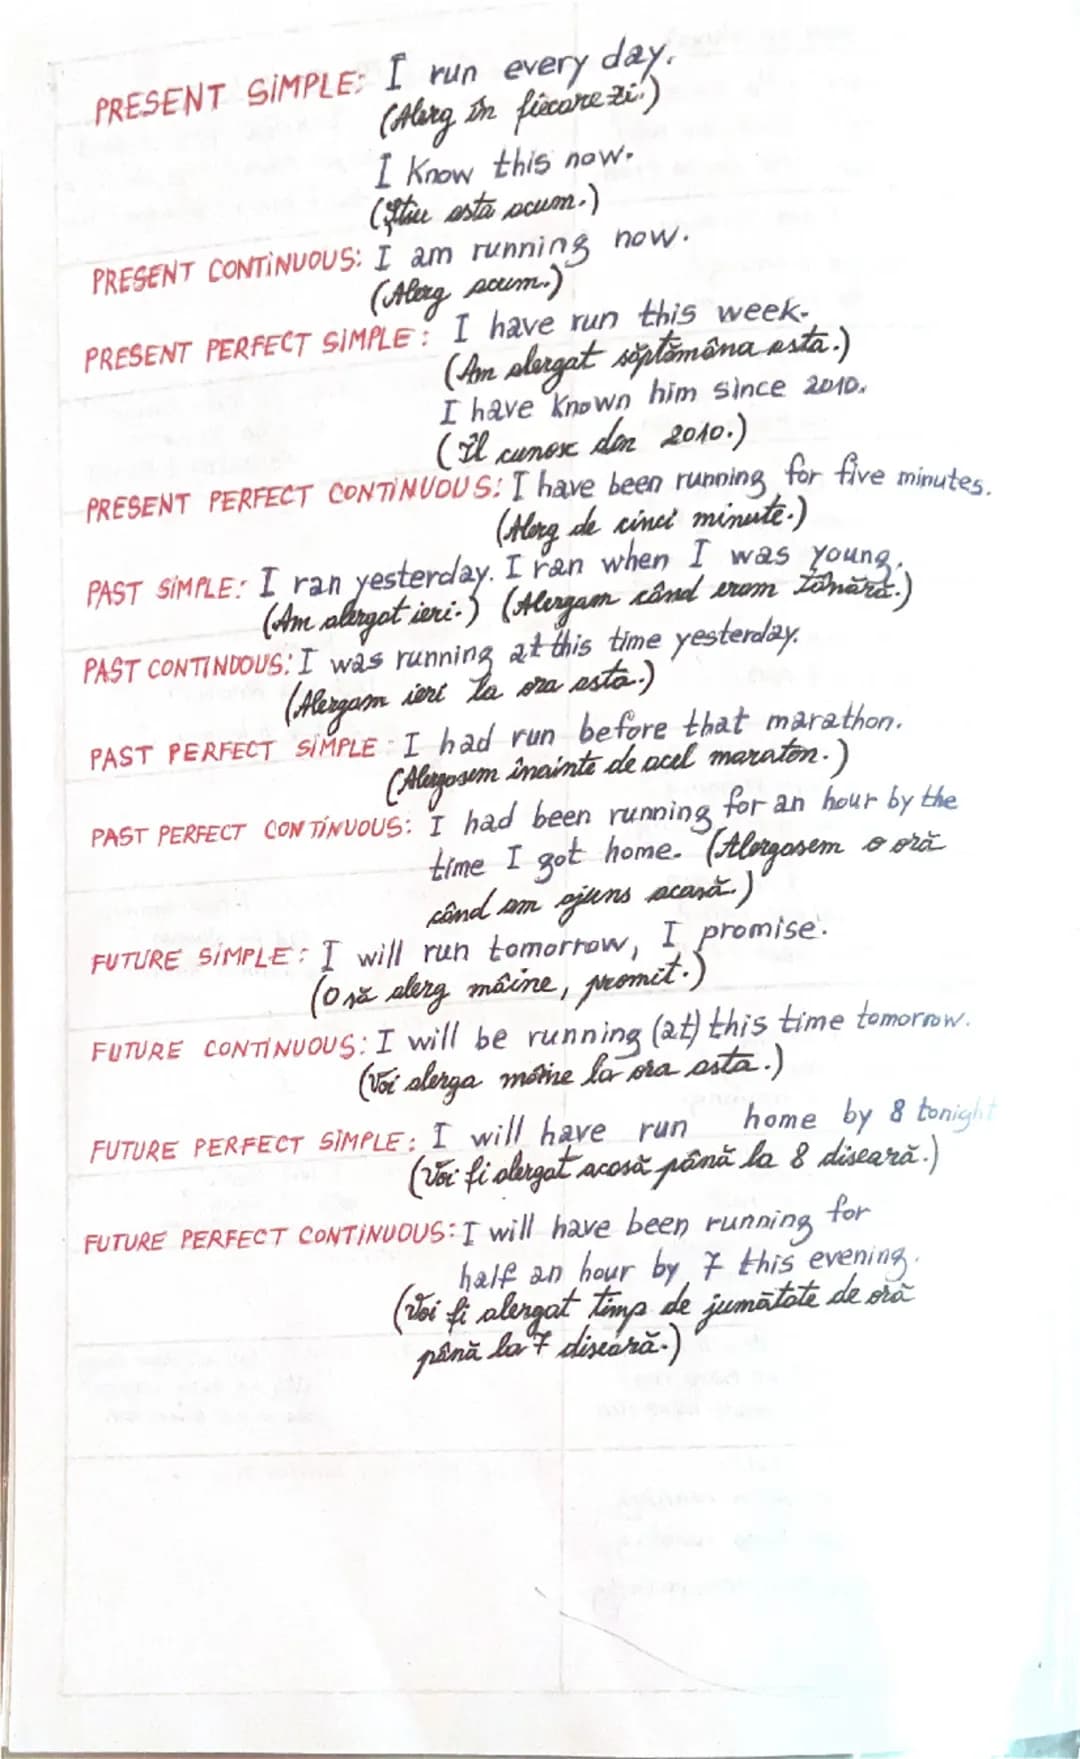 PRESENT SIMPLE: I run every day.
(Alerg în fiecare zi.)
I know this now.
(Știu asta acum.)
PRESENT CONTINUOUS: I am running now.
(Alerg acum.)
PRESENT PERFECT SIMPLE: I have run this week.
(Am alergat săptămâna asta.)
I have known him since 2010.
(Îl cunosc din 2010.)
PRESENT PERFECT CONTINUOUS: I have been running for five minutes.
(Alerg de cinci minute.)
PAST SIMPLE: I ran yesterday. I ran when I was young.
(Am alergat ieri.) (Alergam când eram tânără.)
PAST CONTINUOUS: I was running at this time yesterday.
(Alergam ieri la ora asta.)
PAST PERFECT SIMPLE: I had run before that marathon.
(Alergasem înainte de acel maraton.)
PAST PERFECT CONTINUOUS: I had been running for an hour by the
time I got home. (Alergasem o oră
când am ajuns acasă.)
FUTURE SIMPLE: I will run tomorrow, I promise.
(O să alerg mâine, promit.)
FUTURE CONTINUOUS: I will be running (at) this time tomorrow.
(Voi alerga mâine la ora asta.)
FUTURE PERFECT SIMPLE: I will have run home by 8 tonight
(Voi fi alergat acasă până la 8 diseară.)
FUTURE PERFECT CONTINUOUS: I will have been running for
half an hour by 7 this evening.
(Voi fi alergat timp de jumătate de oră
până la 7 diseară.)